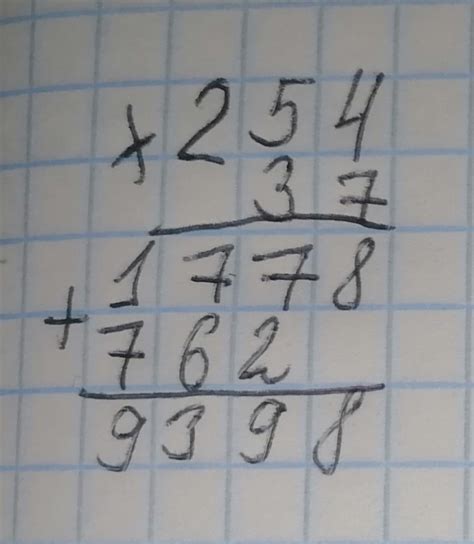 × 254
37
1778
+
762
9398